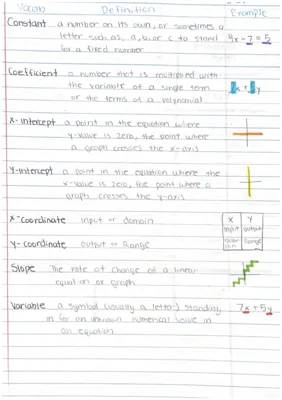 Vocab Definition Example
Constant a number on its own, or sometimes a
letter such as, a, b, or c to stand 4x - 7 = 5
for a fixed number
Coefficient a number that is multiplied with
the variable of a single term
or the terms of a polynomial
X-intercept a point in the equation where
y-value is zero, the point where
a graph crosses the x-axis
Y-intercept a point in the equation where the
x-value is zero, the point where a
graph crosses the y-axis
X-coordinate input or domain X Y
input output
y-coordinate output or Range Range
Slope The rate of change of a linear
equation or graph
Variable a symbol (usually a letter) standing 7x + 5y
in for an unknown numerical value in
an equation